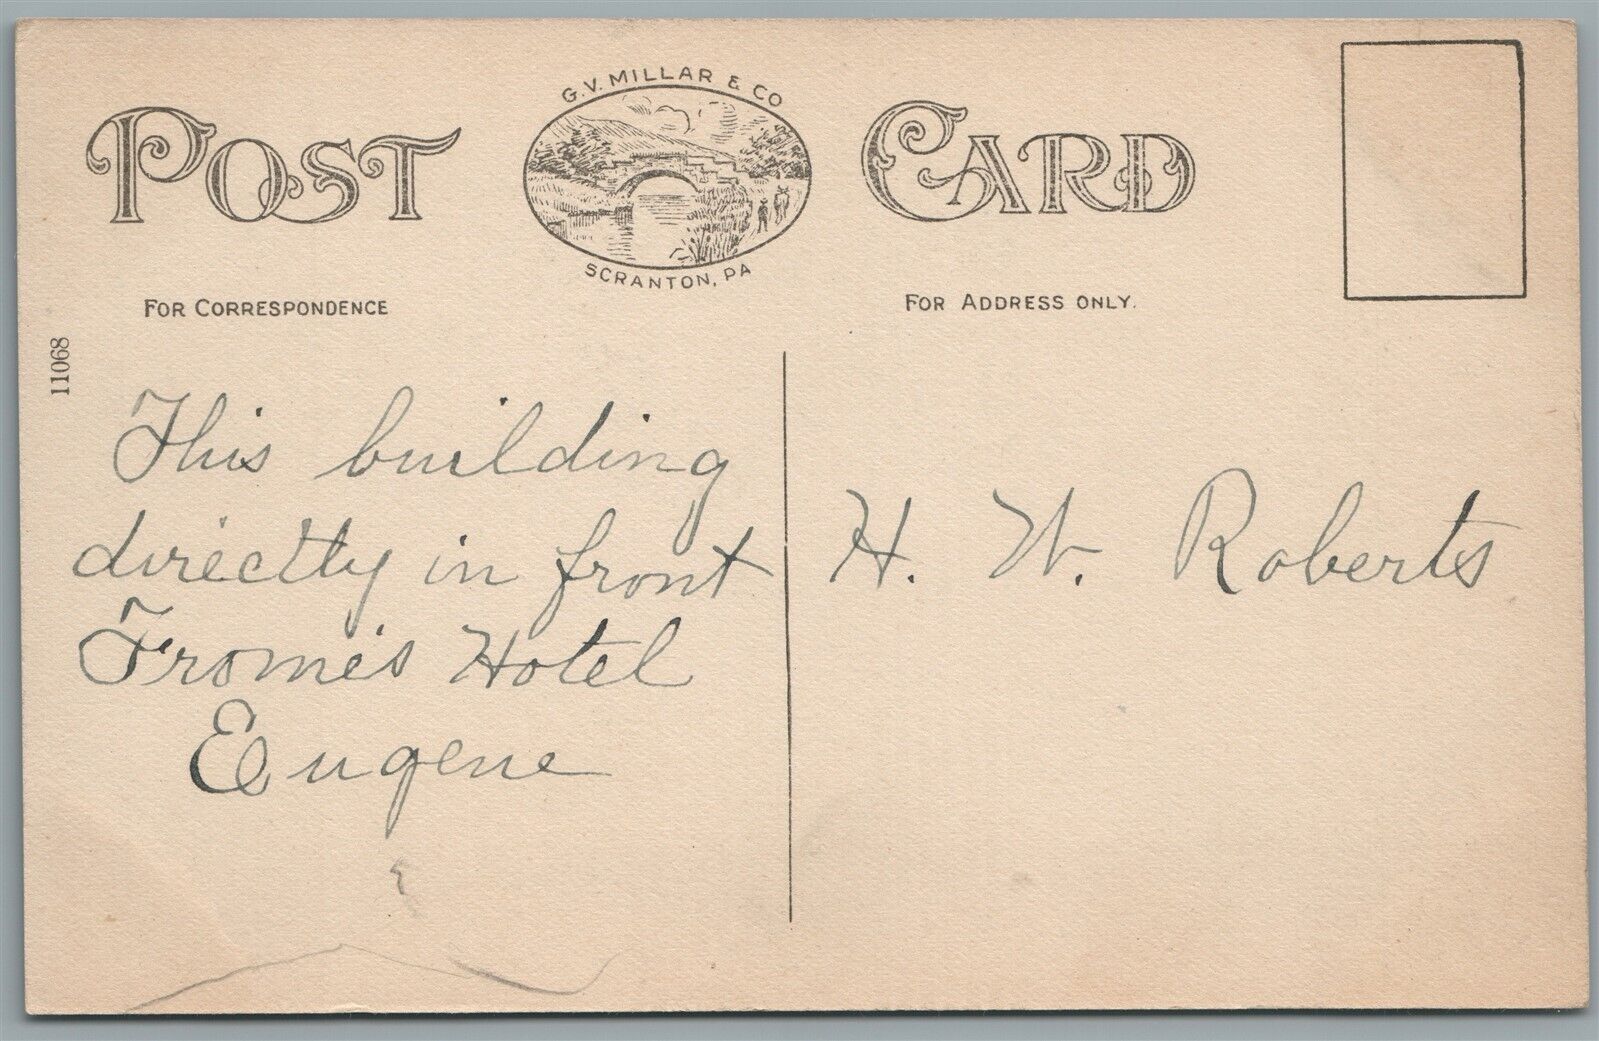 G.V. MILLAR & CO
POST CARD
SCRANTON, PA
FOR CORRESPONDENCE
FOR ADDRESS ONLY.
11068
This building
directly in front
Frome's Hotel
Eugene
H. W. Roberts